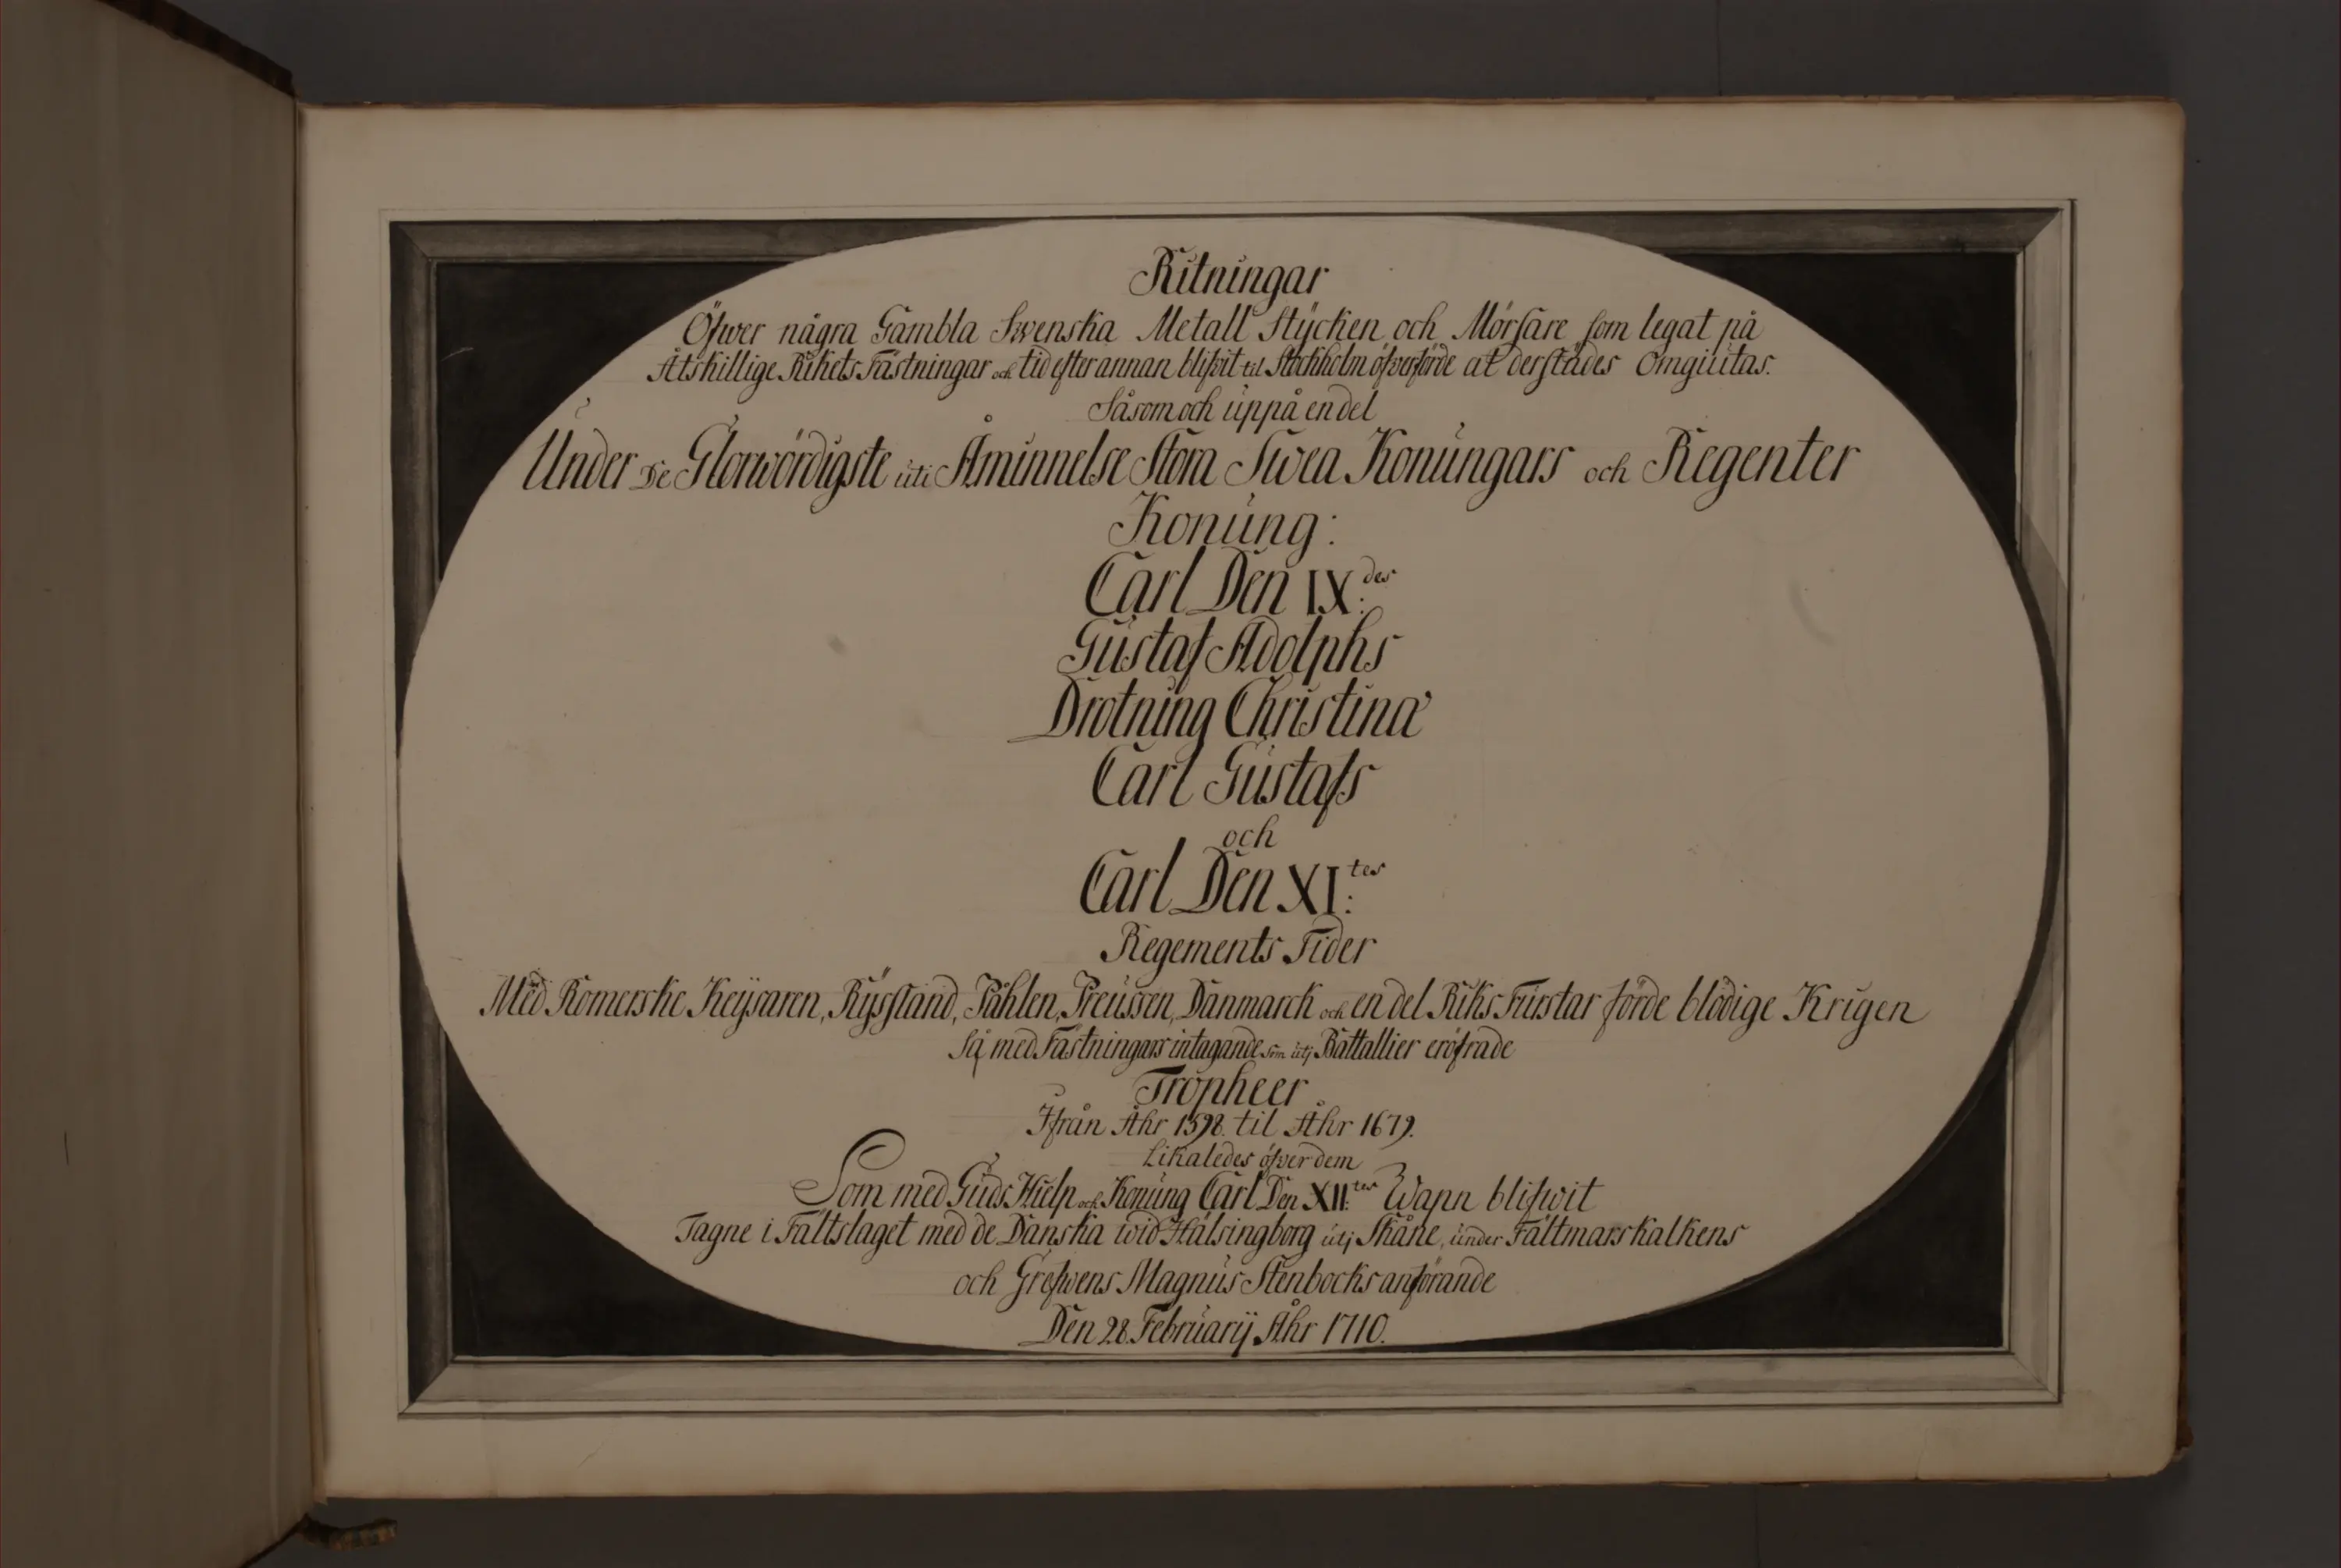 Ritningar
Öfwer några Gambla Swenska Metall Stÿcken och Mörsare som legat på
Åtskillige Rikets Fästningar och tid efter annan blifvit til Stockholm öfverförde at derstädes Omgiutas.
Såsom och uppå en del
Under De Glorwördigste uti Åminnelse Stora Swea Konungars och Regenter
Konung:
Carl Den IX:des
Gustaf Adolphs
Drotning Christinæ
Carl Gustafs
och
Carl Den XI:tes
Regements Tider
Med Romerske Keÿsaren, Rÿssland, Påhlen, Preussen, Danmarck och en del Riks Furstar förde blodige Krigen
Så med Fästningars intagande som utj Battallier eröfrade
Tropheer
Ifrån Åhr 1598. til Åhr 1679.
Likaledes öfver dem
Som med Guds Hielp och Konung Carl Den XII:tes Wapn blifwit
Tagne i Fältslaget med de Danska wid Hälsingborg utj Skåne, under Fältmarskalkens
och Grefwens Magnus Stenbocks anförande
Den 28. Februarÿ Åhr 1710.